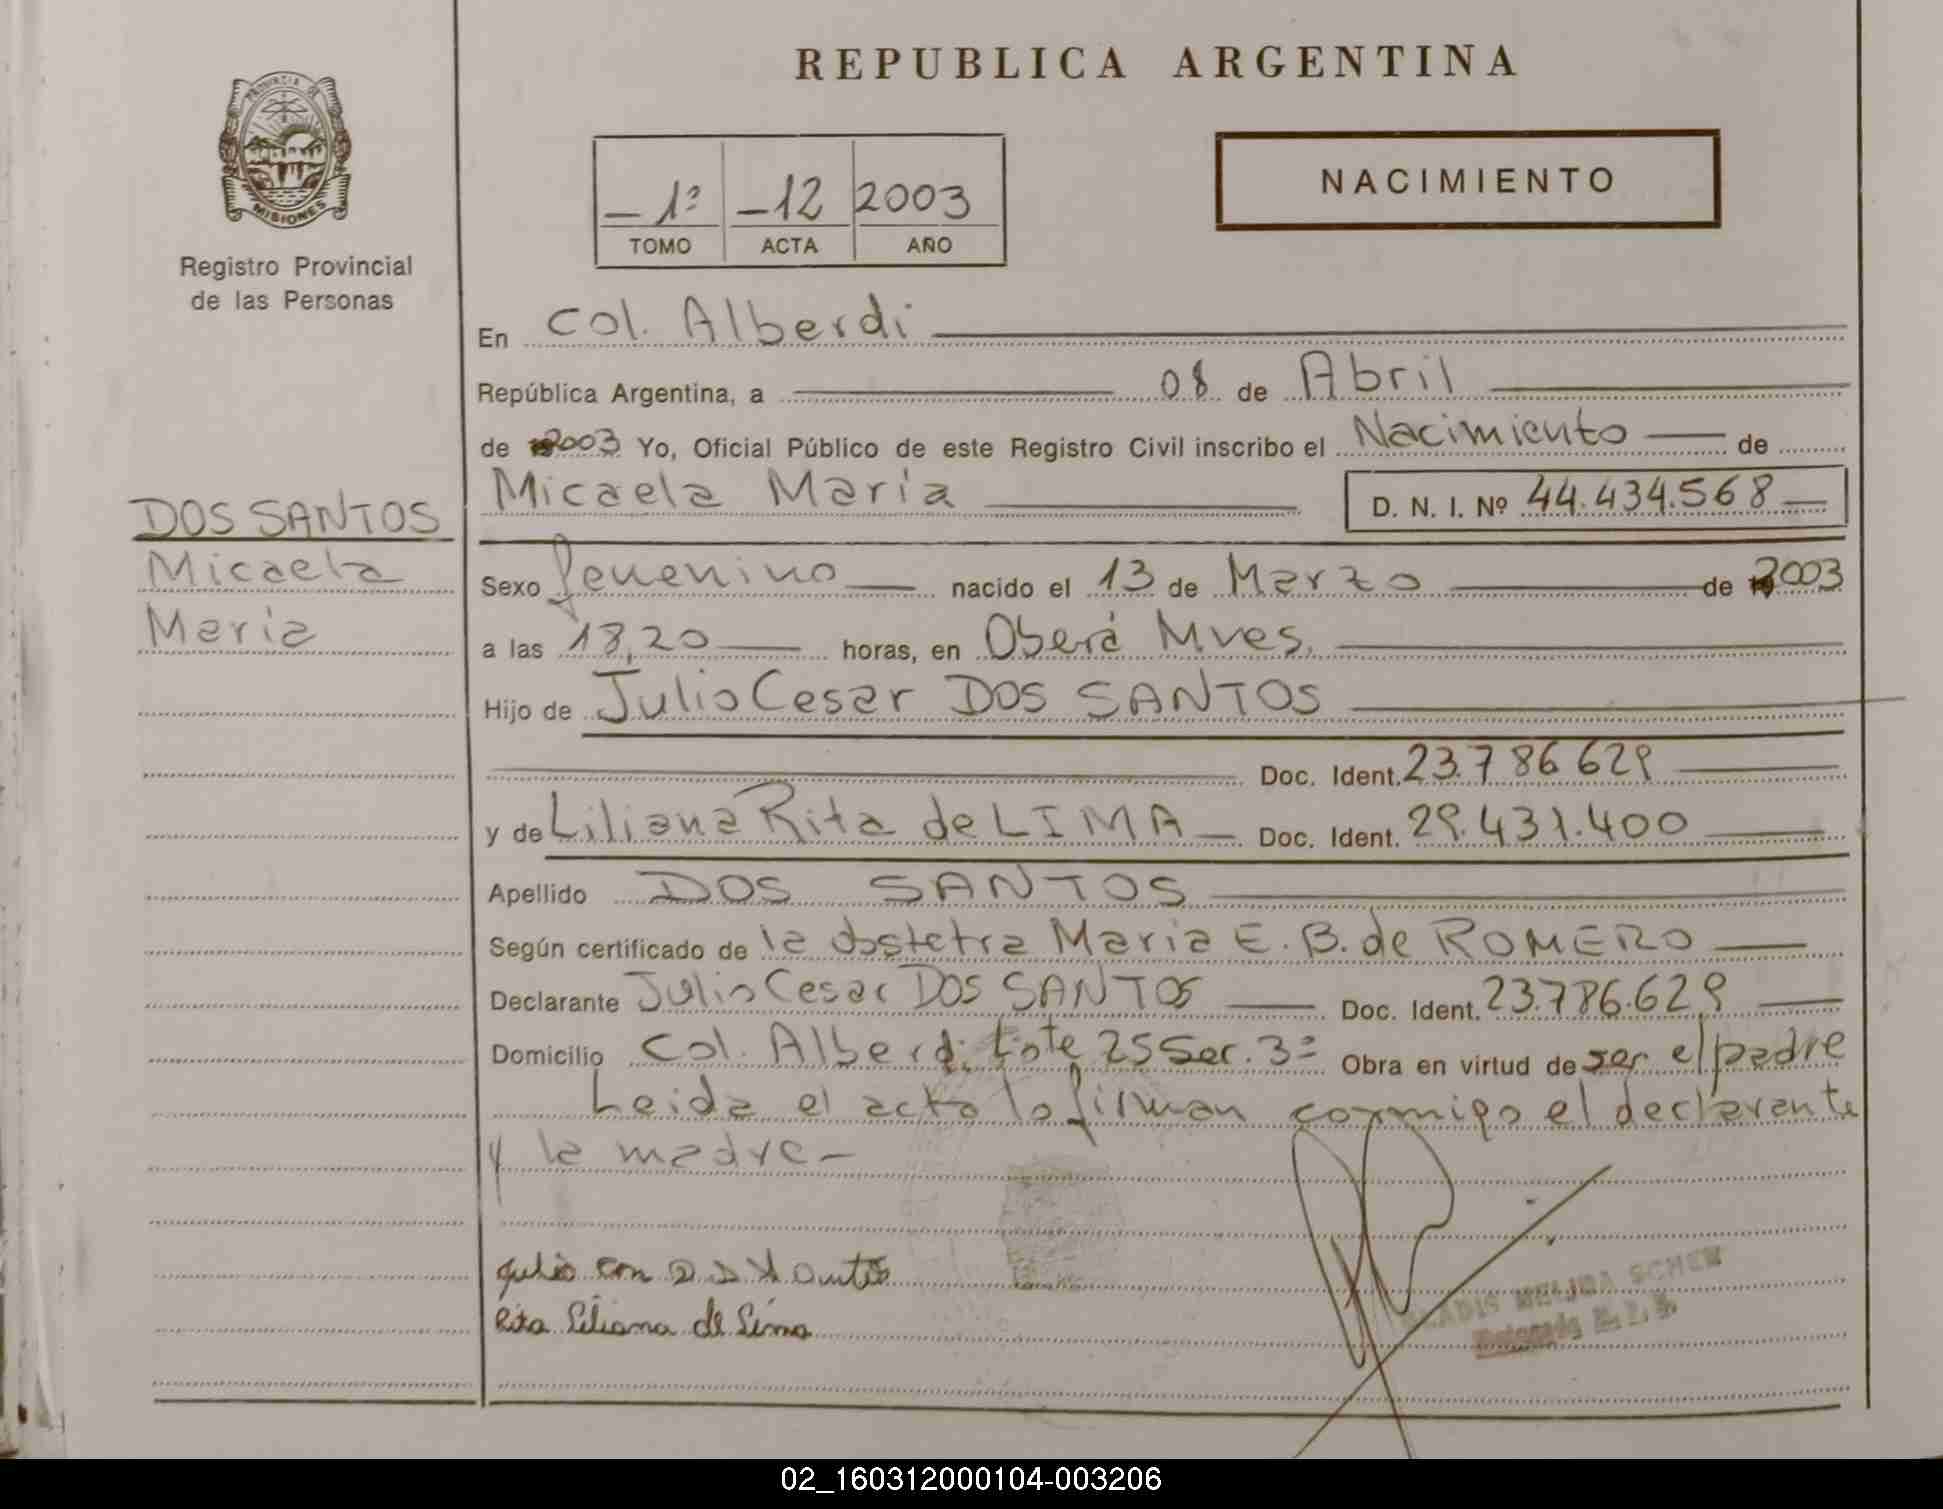 REPUBLICA ARGENTINA
PROVINCIA DE
MISIONES
Registro Provincial
de las Personas
NACIMIENTO
-1ª -12 2003
TOMO ACTA AÑO
En Col. Alberdi
República Argentina, a 08 de Abril
de 2003 Yo, Oficial Público de este Registro Civil inscribo el Nacimiento de
Micaela María D. N. I. Nº 44.434.568
DOS SANTOS
Micaela
María
Sexo femenino nacido el 13 de Marzo de 2003
a las 18,20 horas, en Oberá Mnes.
Hijo de Julio Cesar DOS SANTOS
Doc. Ident. 23.786629
y de Liliana Rita de LIMA Doc. Ident. 29.431.400
Apellido DOS SANTOS
Según certificado de la obstetra Maria E. B. de ROMERO
Declarante Julio Cesar DOS SANTOS Doc. Ident. 23.786.629
Domicilio Col. Alberdi Lote 25 Sec. 3ª Obra en virtud de ser el padre
Leida el acta lo firman conmigo el declarante
y la madre-
Rita Liliana de Lima
02_160312000104-003206